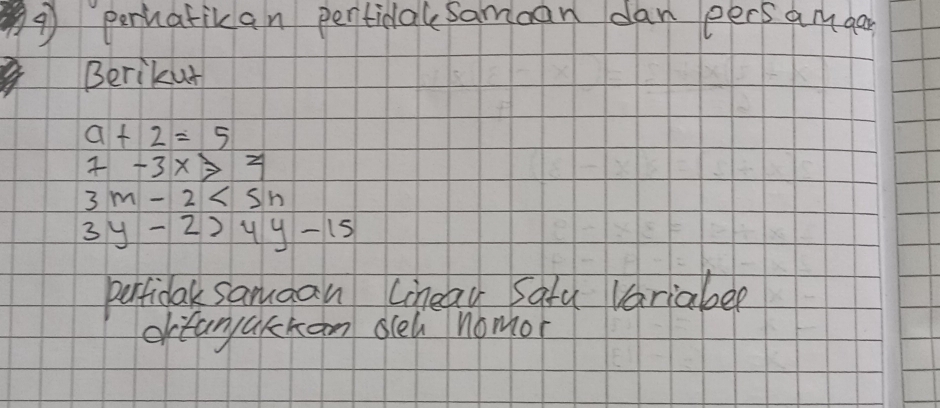 9) perhatikan pertidaksamaan dan persamaan
Berikut
a + 2 = 5
7 - 3x ≥ 7
3m - 2 < 5n
3y - 2 > 4y - 15
pertidaksamaan Linear Satu Variabel
ditunjukkan oleh nomor